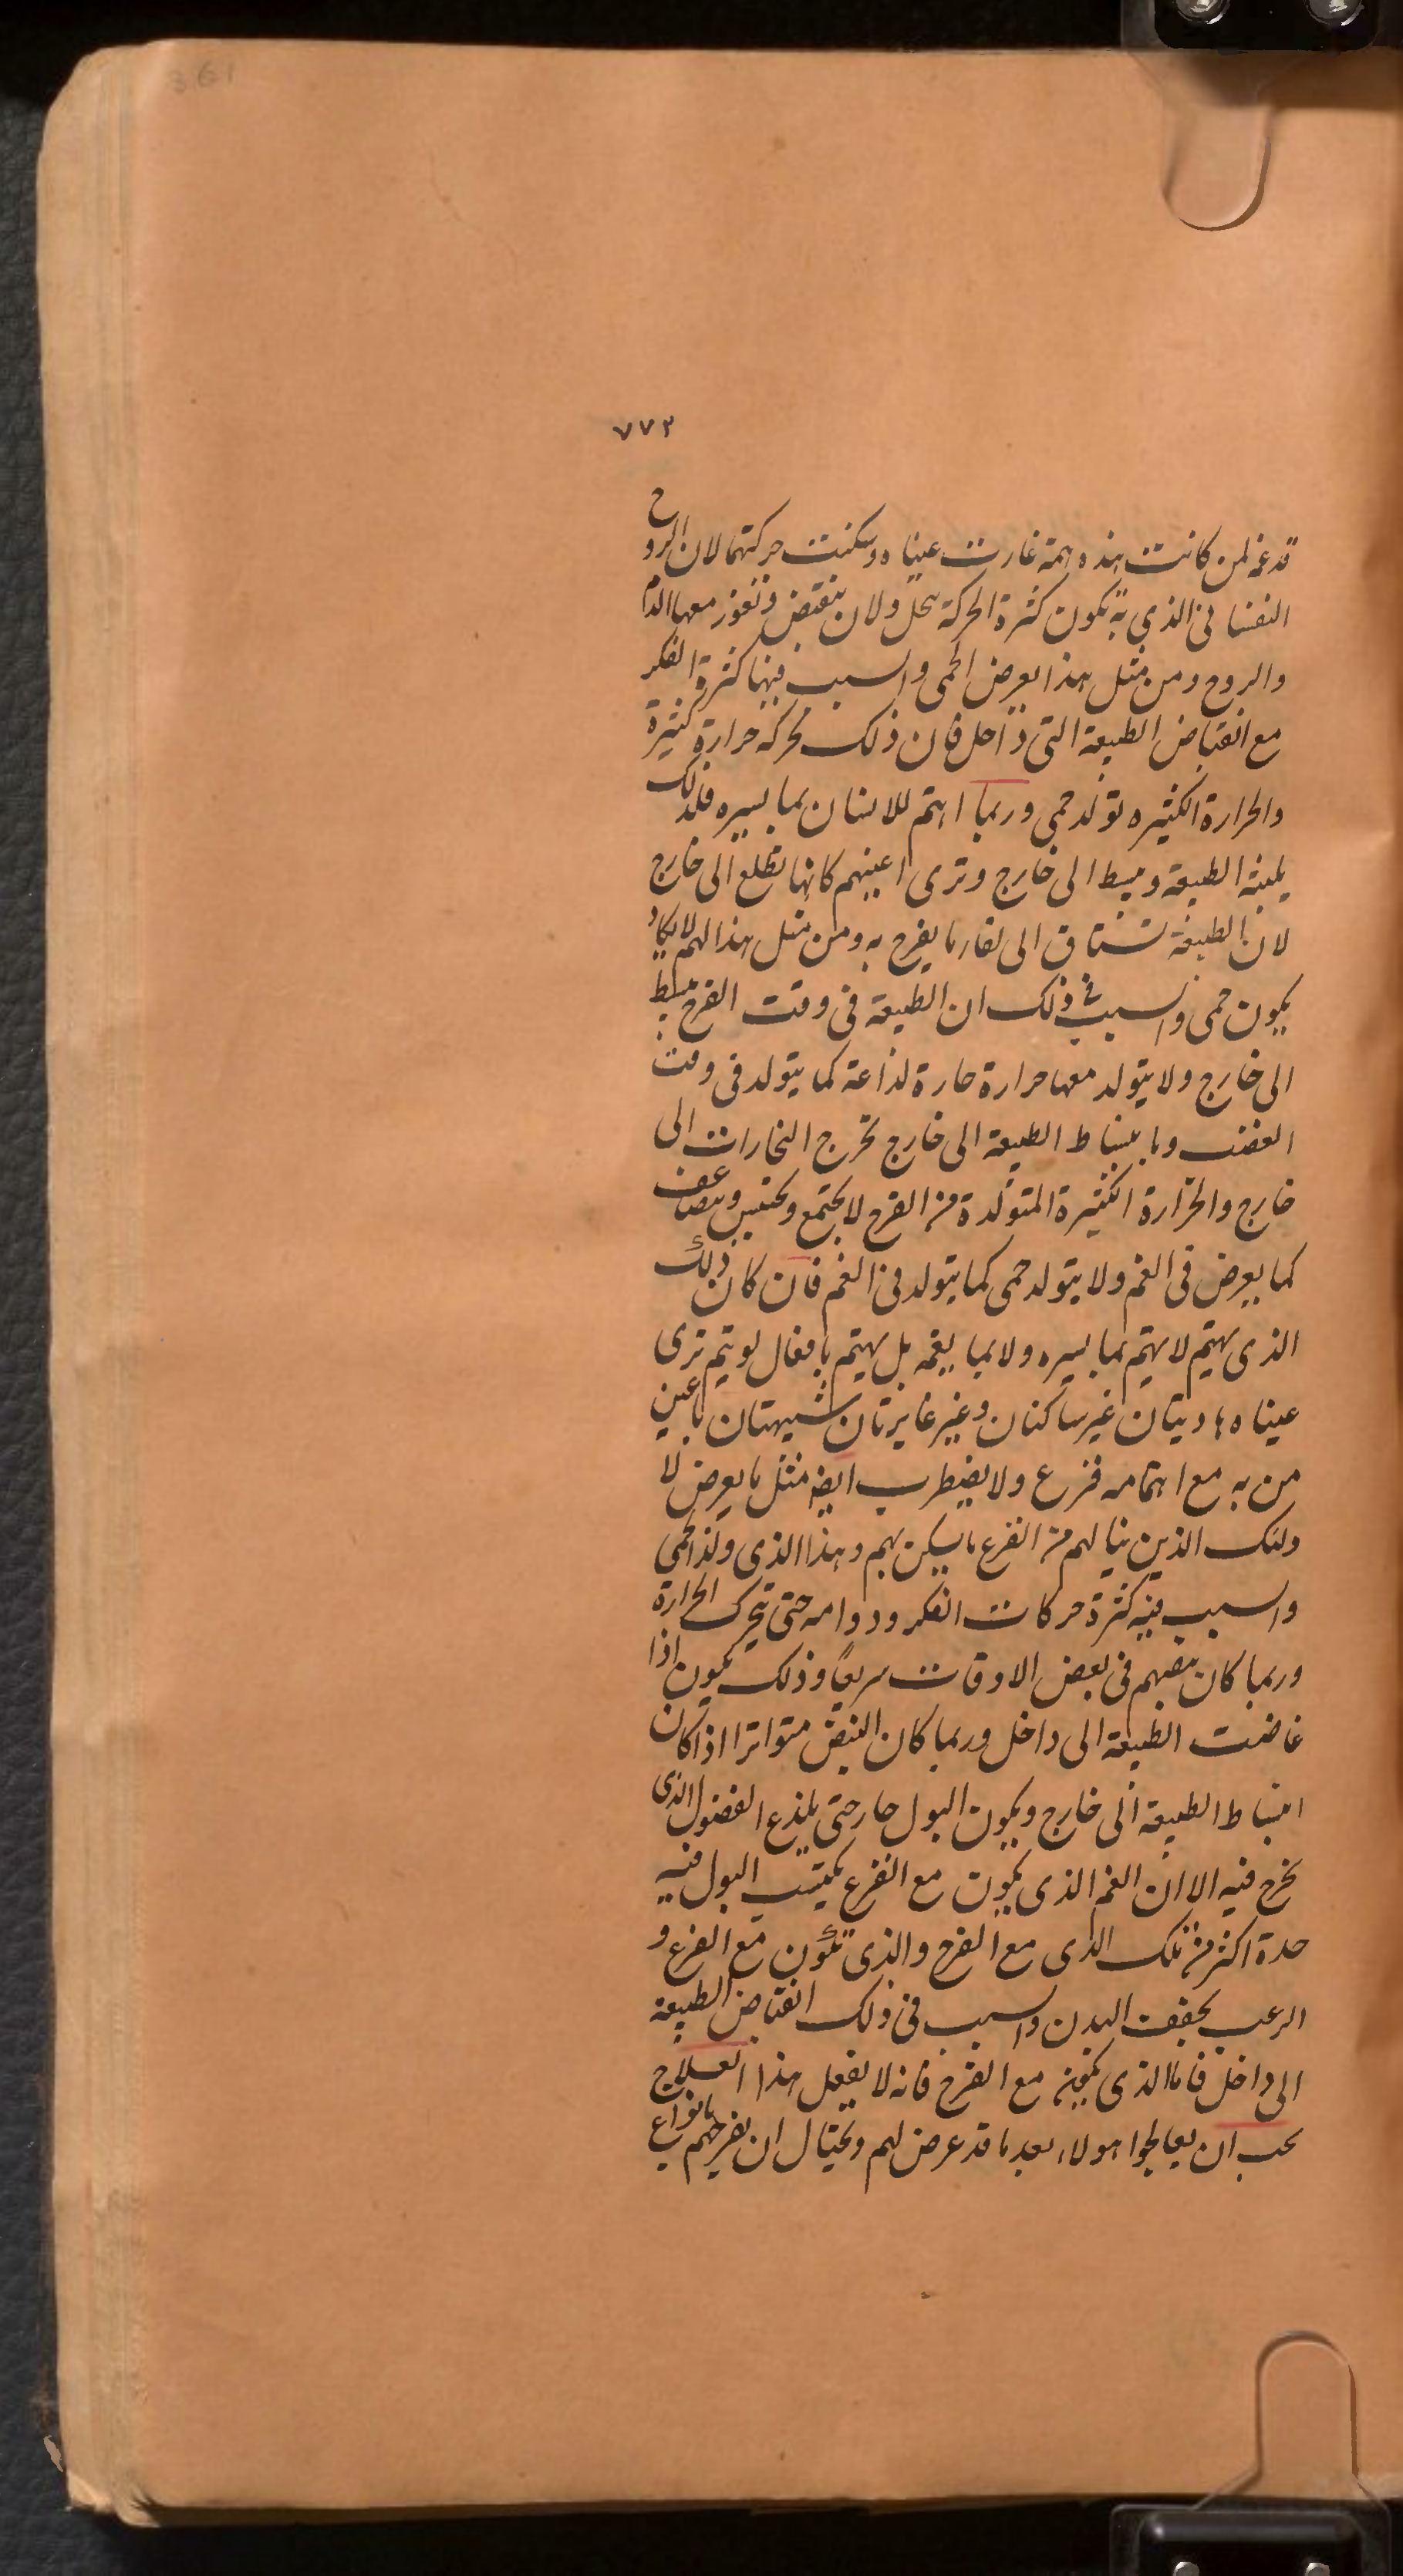 361
٧٧٢
قد غم لمن كانت هذه همه غارت عيناه وسكنت حركتهما لان الروح
النفسانى الذي به تكون كثرة الحركة يحل ولان ينقبض وتغور معها الدم
والروح ومن مثل هذا يعرض الحمى والسبب فيها كثرة الفكر
مع انقباض الطبيعة التى داخل فان ذلك محركه حرارة كثيرة
والحرارة الكثيره تولد حمى وربما اهتم للانسان بما يسره فلذلك
الطبيعة وينبسط الى خارج وترى اعينهم كانها تطلع الى خارج
لان الطبيعة تشتاق الى لقاء ما يفرح به ومن مثل هذا الهم لا يكاد
يكون حمى والسبب فى ذلك ان الطبيعة فى وقت الفرح ينبسط
الى خارج ولا يتولد معها حرارة حارة لذاعة كما يتولد فى وقت
الغضب وبانبساط الطبيعة الى خارج تخرج البخارات الى
خارج والحرارة الكثيرة المتولدة من الفرح لا يجتمع ويحتبس ويتضاعف
كما يعرض فى الغم ولا يتولد حمى كما يتولد فى الغم فان كان ذلك
الذى يهتم لا يهتم بما يسره ولا بما يغمه بل يهتم بافعال لو يتم ترى
عيناه هاديتان غير ساكنان وغير غايرتان شبيهتان باعين
من به مع اهتمامه فزع ولا يضطرب ايضا مثل ما يعرض لا
ولئك الذين ينالهم من الفزع ما يسكن بهم وهذا الذى ولد الحمى
والسبب فيه كثرة حركات الفكر ودوامه حتى تحرك الحرارة
وربما كان نبضهم فى بعض الاوقات سريعًا وذلك يكون اذا
غاضت الطبيعة الى داخل وربما كان النبض متواترا اذا كان
انبساط الطبيعة الى خارج ويكون البول حار حتى يلذع الفضول الذى
يخرج فيه الا ان الغم الذى يكون مع الفزع يكتسب البول فيه
حدة اكثر من تلك الذى مع الفرح والذى تكون مع الفزع و
الرعب يجفف البدن والسبب فى ذلك انقباض الطبيعة
الى داخل فاما الذى يكون مع الفرح فانه لا يفعل هذا العلاج
يجب ان يعالجوا هولاء بعد ما قد عرض لهم ويحتال ان يفرحهم بانواع